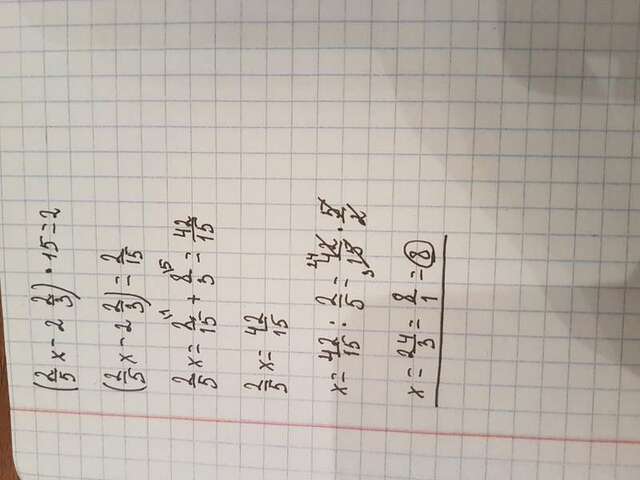 (2/5 x - 2 2/3) · 15 = 2
(2/5 x - 2 2/3) = 2/15
2/5 x = 2\1/15 + 8\5/3 = 42/15
2/5 x = 42/15
x = 42/15 : 2/5 = 24 42/15 3 · 5/2
x = 24/3 = 8/1 = 8